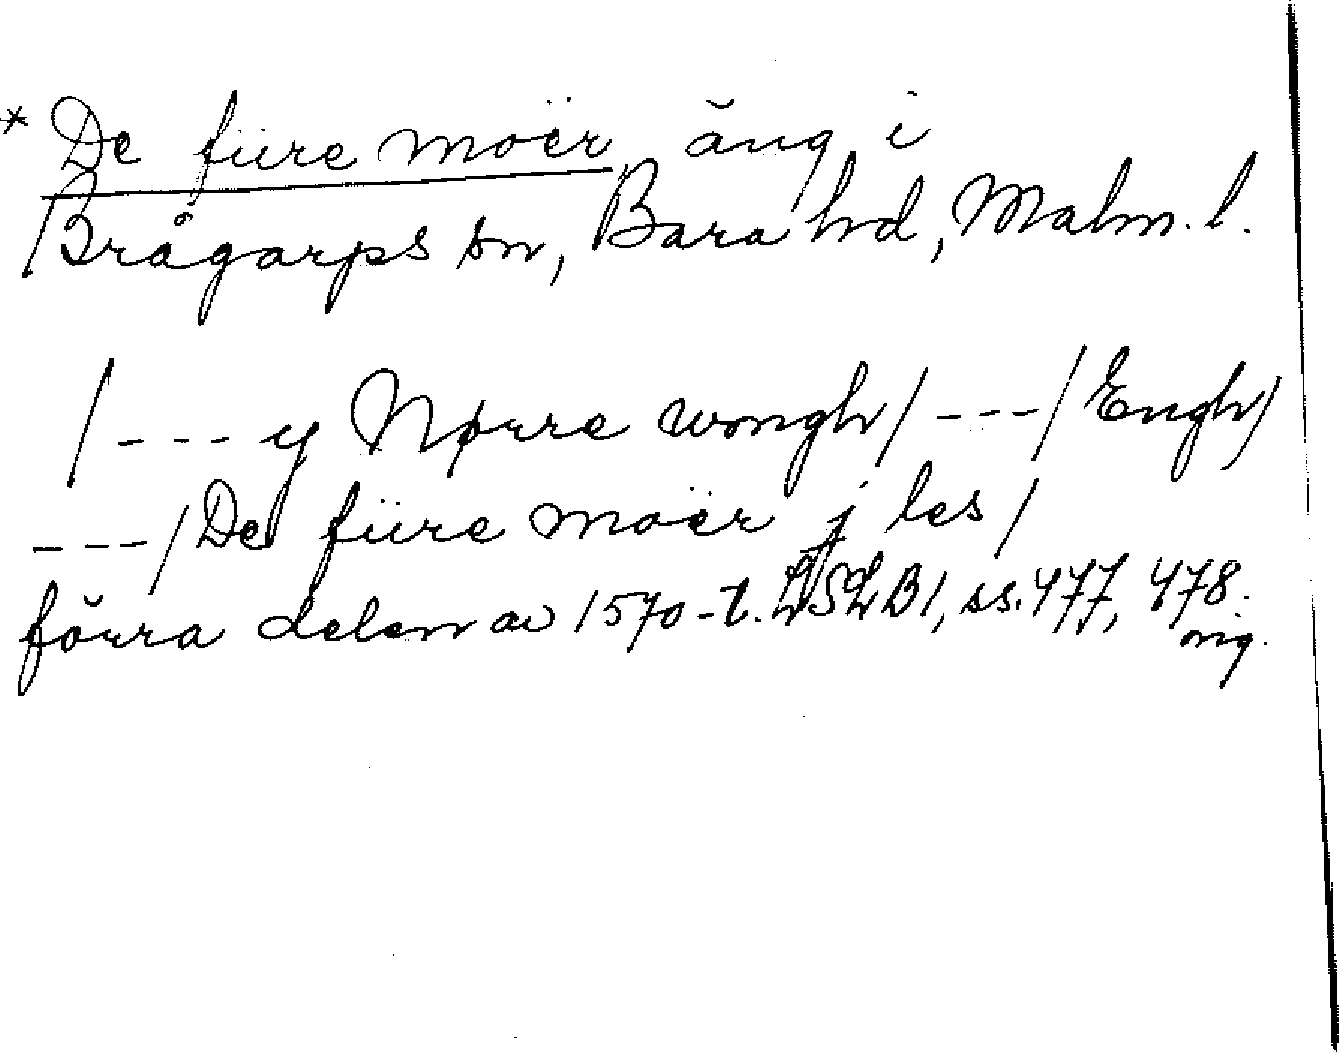 * De füre moër äng i
Brågarps sn, Bara hd, Malm. l.
/ - - - y Nørre wongh / - - - / Engh /
- - - / De füre moër j les /
förra delen av 1570-t. LSLB 1, ss. 477, 478.
orig.